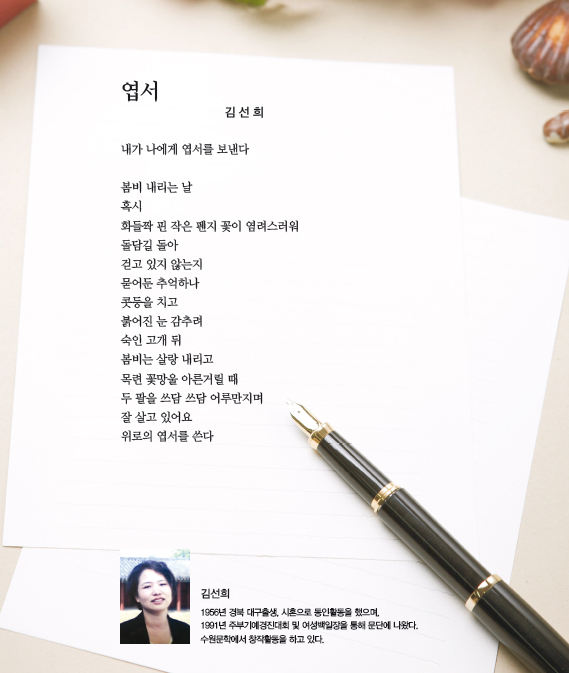 엽서
김선희
내가 나에게 엽서를 보낸다
봄비 내리는 날
혹시
화들짝 핀 작은 팬지 꽃이 염려스러워
돌담길 돌아
걷고 있지 않는지
묻어둔 추억하나
콧등을 치고
붉어진 눈 감추려
숙인 고개 뒤
봄비는 살랑 내리고
목련 꽃망울 아른거릴 때
두 팔을 쓰담 쓰담 어루만지며
잘 살고 있어요
위로의 엽서를 쓴다
김선희
1956년 경북 대구출생, 시혼으로 동인활동을 했으며,
1991년 주부기예경진대회 및 여성백일장을 통해 문단에 나왔다.
수원문학에서 창작활동을 하고 있다.